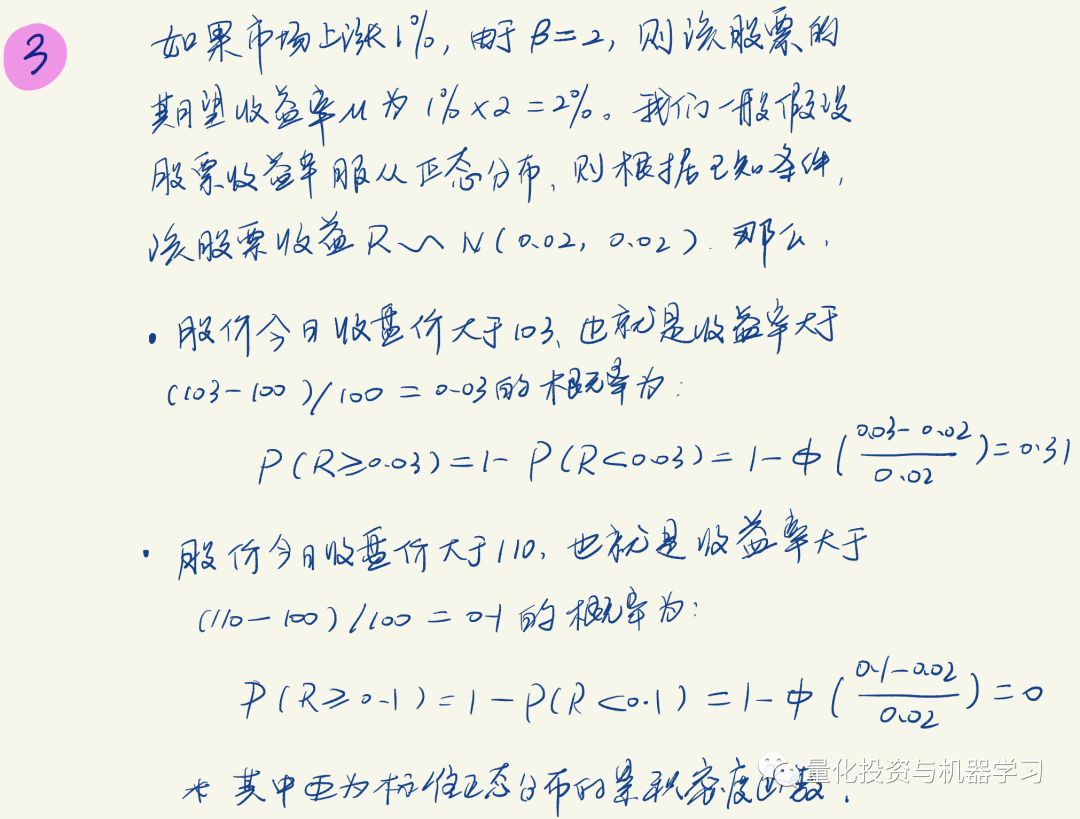 3
如果市场上涨1%, 由于 β=2, 则该股票的
期望收益率μ为 1%×2=2%。我们一般假设
股票收益率服从正态分布, 则根据已知条件,
该股票收益 R~N(0.02, 0.02). 那么,
• 股价今日收盘价大于103, 也就是收益率大于
(103-100)/100 = 0.03的概率为:
P(R≥0.03)=1- P(R<0.03)= 1-Φ(\frac{0.03-0.02}{0.02})=0.31
• 股价今日收盘价大于110, 也就是收益率大于
(110-100)/100 = 0.1 的概率为:
P(R≥0.1)=1-P(R<0.1)=1-Φ(\frac{0.1-0.02}{0.02})=0
* 其中Φ为标准正态分布的累积密度函数.
量化投资与机器学习